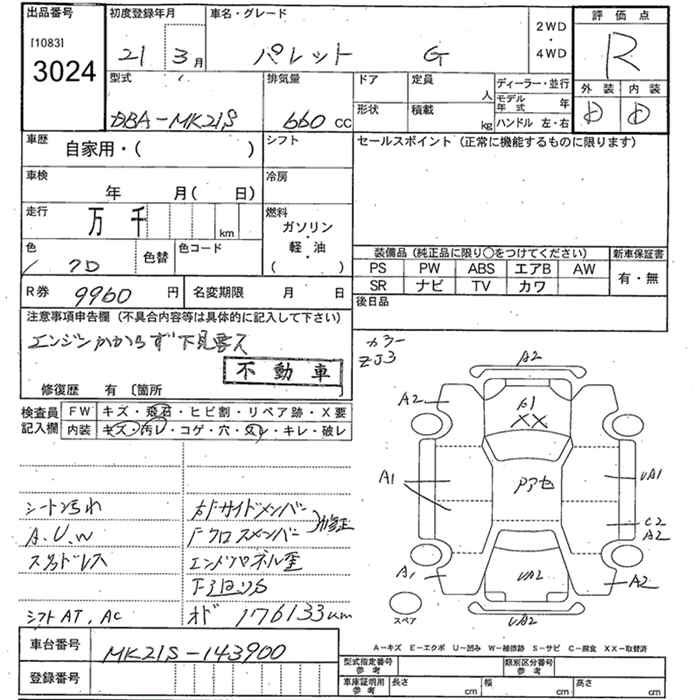 出品番号
[1083]
3024
初度登録年月
21 3月
車名・グレード
パレット G
2WD
・
4WD
評価点
R
外装 内装
D D
型式
DBA-MK21S
排気量
660 CC
ドア
定員
人
形状
積載
kg
ディーラー・並行
モデル年式 年
ハンドル 左・右
車歴
自家用・( )
シフト
セールスポイント (正常に機能するものに限ります)
車検
年 月( 日)
冷房
走行
万 千 km
燃料
ガソリン
・
軽・油
( )
色
色替
色コード
装備品 (純正品に限り○をつけてください)
新車保証書
PS PW ABS エアB AW
SR ナビ TV カワ
有・無
R券 9960 円
名変期限 月 日
後日品
注意事項申告欄 (不具合内容等は具体的に記入して下さい)
エンジンかからず下見要ス
不動車
修復歴 有 〔箇所
カラー
ZJ3
検査員
記入欄
FW キズ・飛石・ヒビ割・リペア跡・X要
内装 キズ・汚レ・コゲ・穴・スレ・キレ・破レ
シート汚れ
A.U.W
スタッドレス
シフトAT, AC
右Fサイドメンバー
Fクロスメンバー
修正
エンドパネル歪
オド 176133km
A2
A2
XX
A1
UA1
C2
A2
A1
UA2
A2
UA2
スペア
車台番号
MK21S-143900
A－キズ E－エクボ U－凹み W－補修跡 S－サビ C－腐食 XX－取替済
登録番号
型式指定番号
参考
類別区分番号
参考
車庫証明用
参考
長さ cm
幅 cm
高さ cm